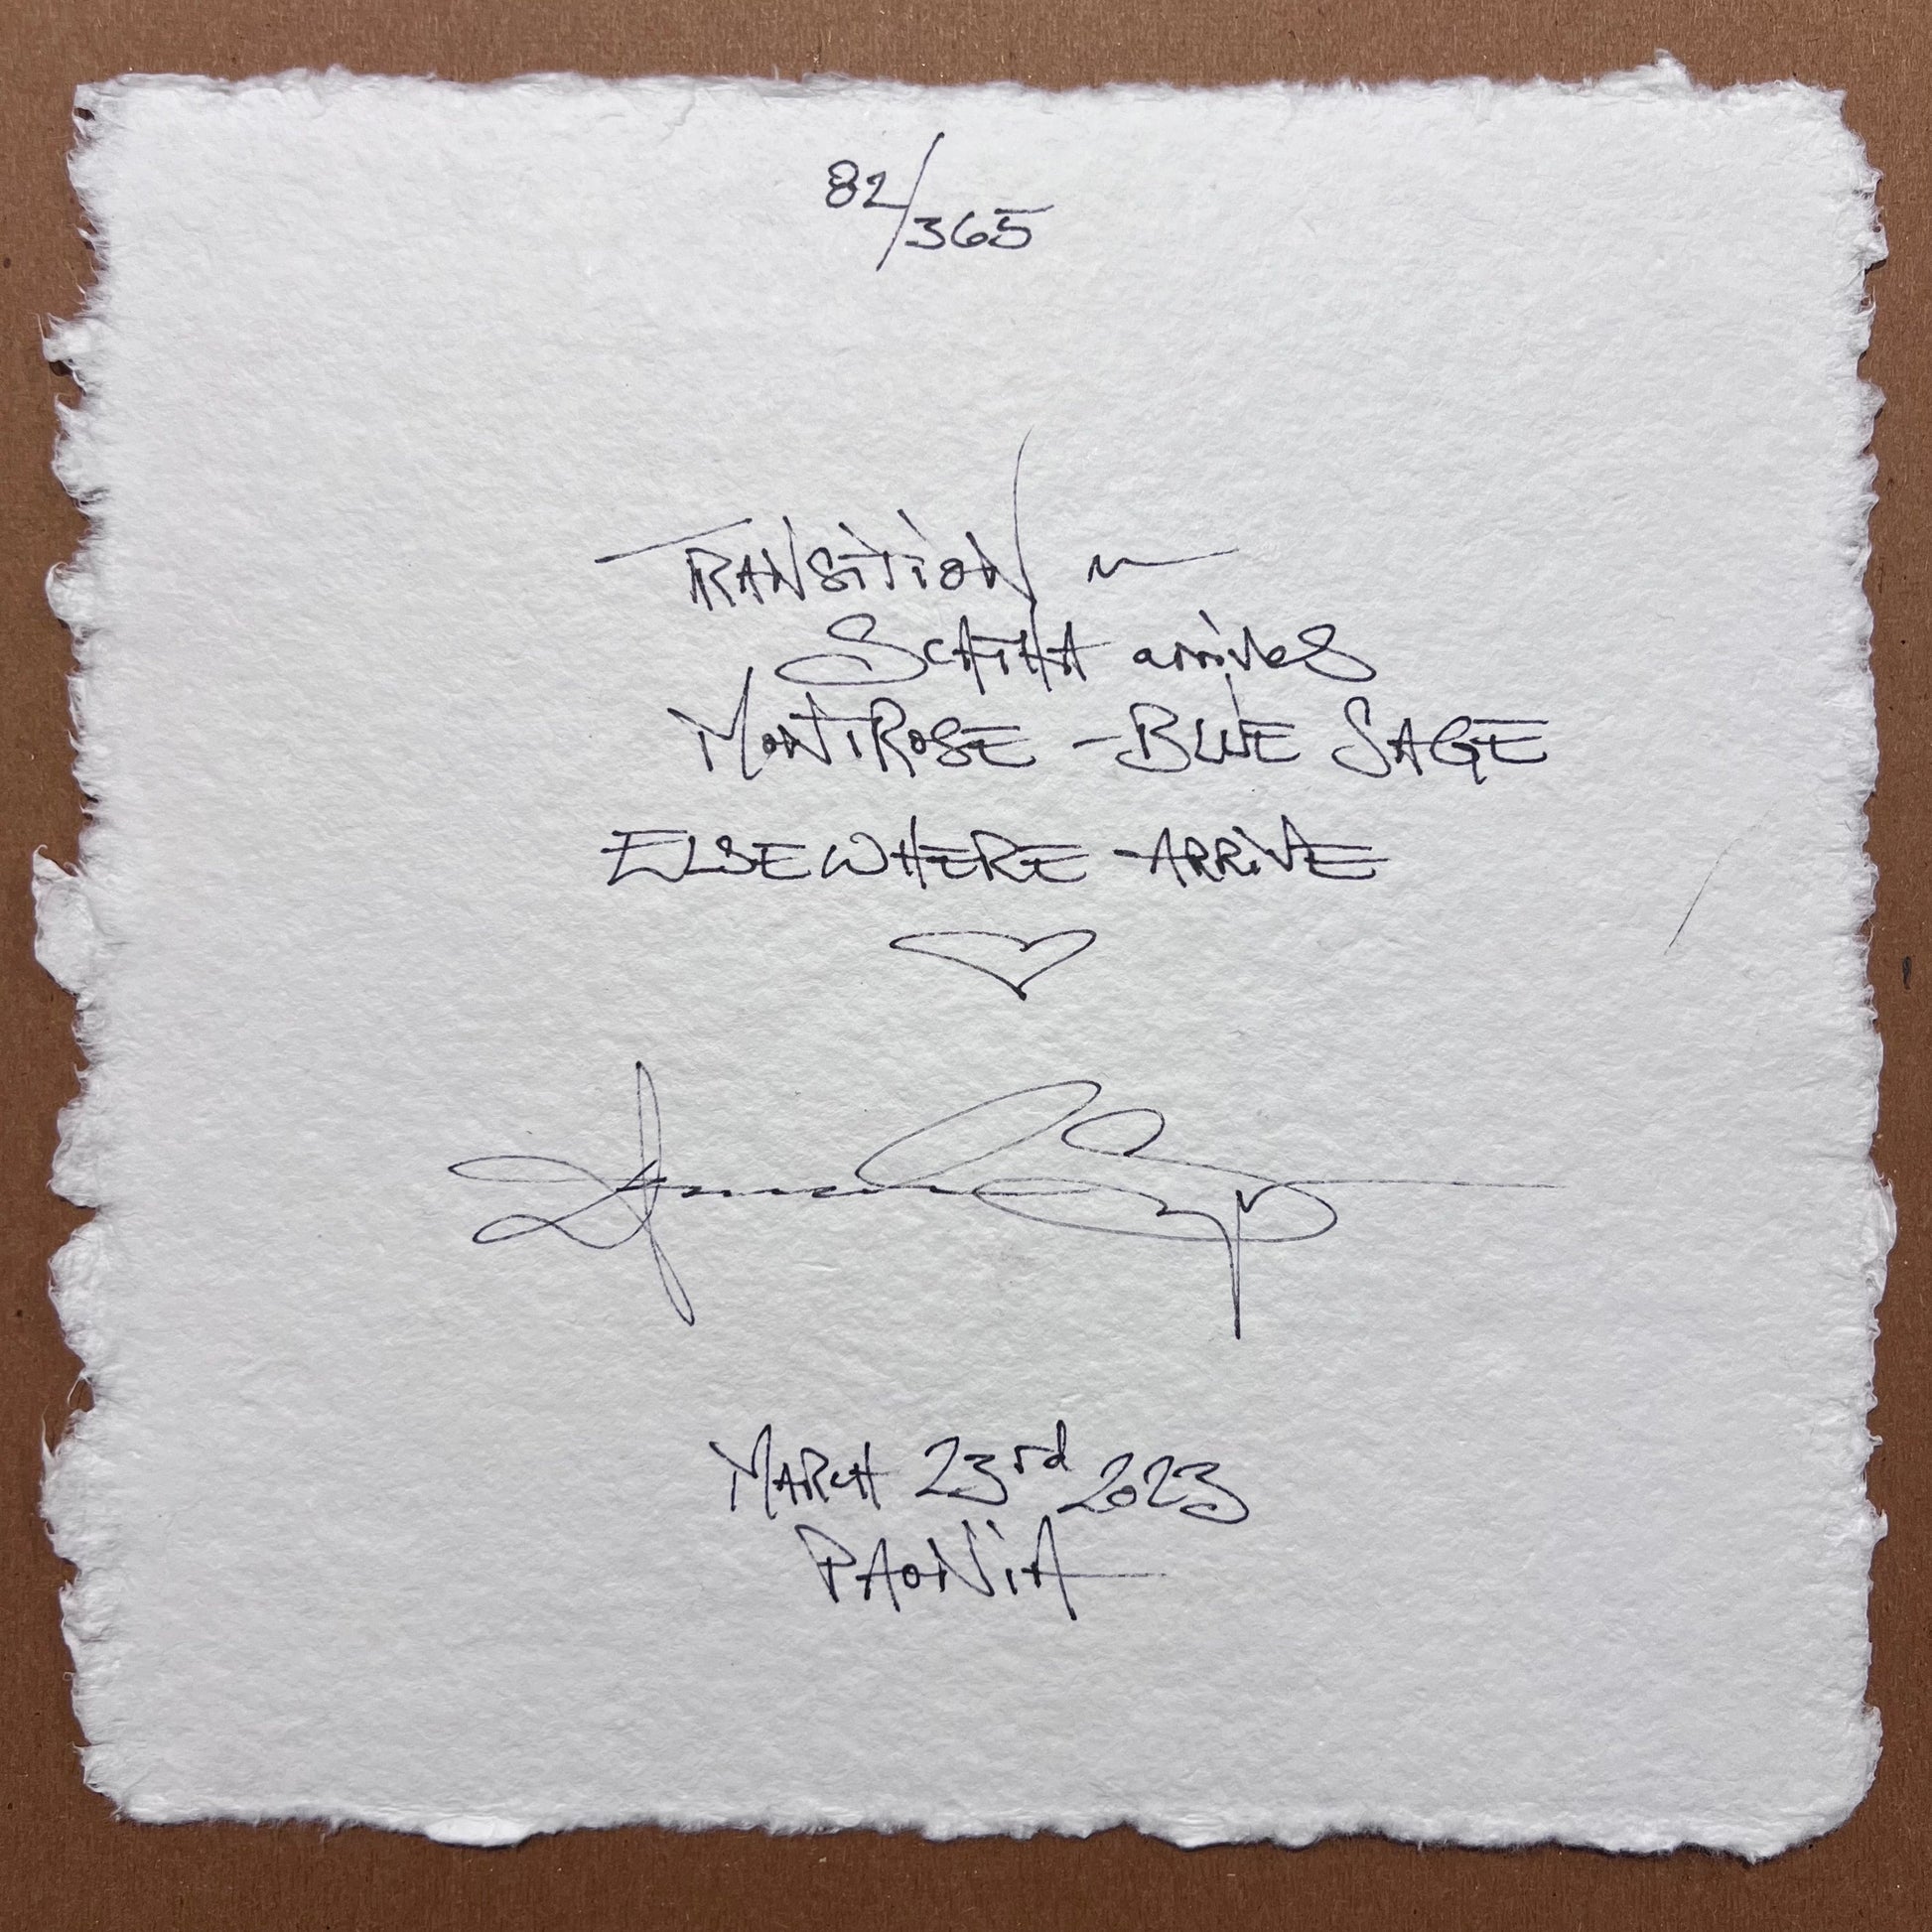 82/365
TRANSiTiON ~
SCATHA arrives
MONTROSE - BLUE SAGE
ELSEWHERE - ARRiVE
MARCH 23rd 2023
PAONiA